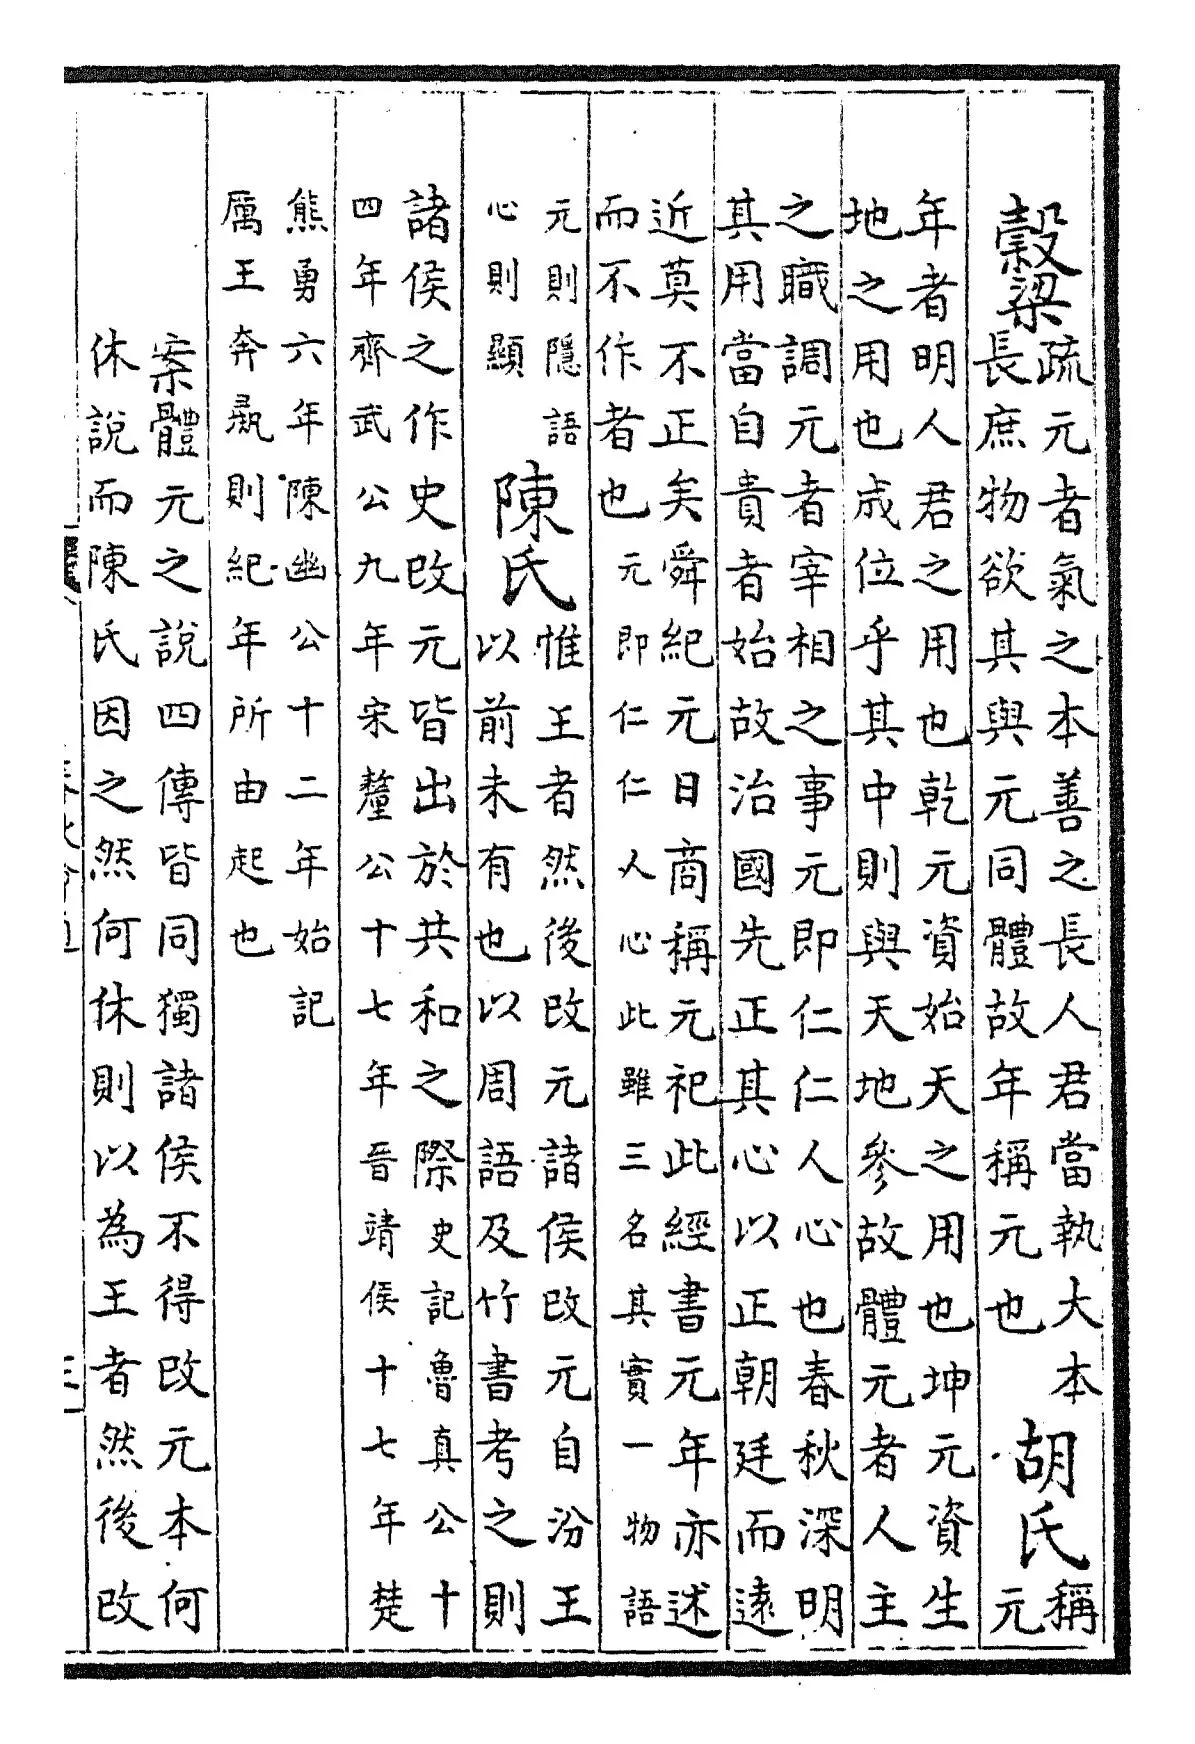 穀梁疏元者氣之本善之長人君當執大本
長庶物欲其與元同體故年稱元也
胡氏稱
元
年者明人君之用也乾元資始天之用也坤元資生
地之用也成位乎其中則與天地參故體元者人主
之職調元者宰相之事元即仁仁人心也春秋深明
其用當自貴者始故治國先正其心以正朝廷而遠
近莫不正矣舜紀元日商稱元祀此經書元年亦述
而不作者也元即仁仁人心此雖三名其實一物語
元則隱語
心則顯
陳氏惟王者然後改元諸侯改元自汾王
以前未有也以周語及竹書考之則
諸侯之作史改元皆出於共和之際史記魯真公十
四年齊武公九年宋釐公十七年晉靖侯十七年楚
熊勇六年陳幽公十二年始記
厲王奔彘則紀年所由起也
案體元之說四傳皆同獨諸侯不得改元本何
休說而陳氏因之然何休則以為王者然後改